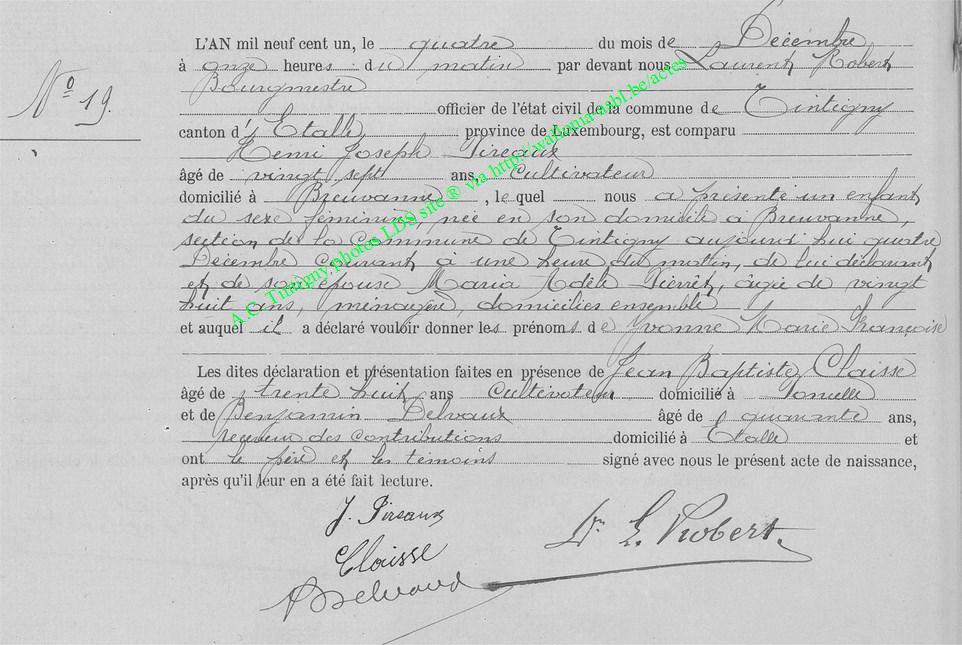 L'AN mil neuf cent un, le quatre du mois de Décembre
à onze heures du matin par devant nous Laurent Robert
Bourgmestre
N° 19.
officier de l'état civil de la commune de Tintigny
canton d'Etalle, province de Luxembourg, est comparu
Henri Joseph Pireaux
âgé de vingt sept ans, Cultivateur
domicilié à Breuvanne, lequel nous a présenté un enfant
du sexe féminin, née en son domicile à Breuvanne,
section de la Commune de Tintigny aujourd'hui quatre
Décembre courant à une heure du matin, de lui déclarant
et de son épouse Maria Adèle, âgée de vingt
huit ans, ménagère, domiciliés ensemble
et auquel il a déclaré vouloir donner les prénoms de Yvonne Marie Françoise
Les dites déclaration et présentation faites en présence de Jean Baptiste Claisse
âgé de trente huit ans Cultivateur domicilié à
et de Benjamin Delvaux âgé de quarante ans,
receveur des contributions domicilié à Etalle et
ont le père et les témoins signé avec nous le présent acte de naissance,
après qu'il leur en a été fait lecture.
J. Pireaux
Claisse
Delvaux
Dr L. Robert.
A.C. Tintigny photos LDS site ® via http://wallonia-aabl.be/actes